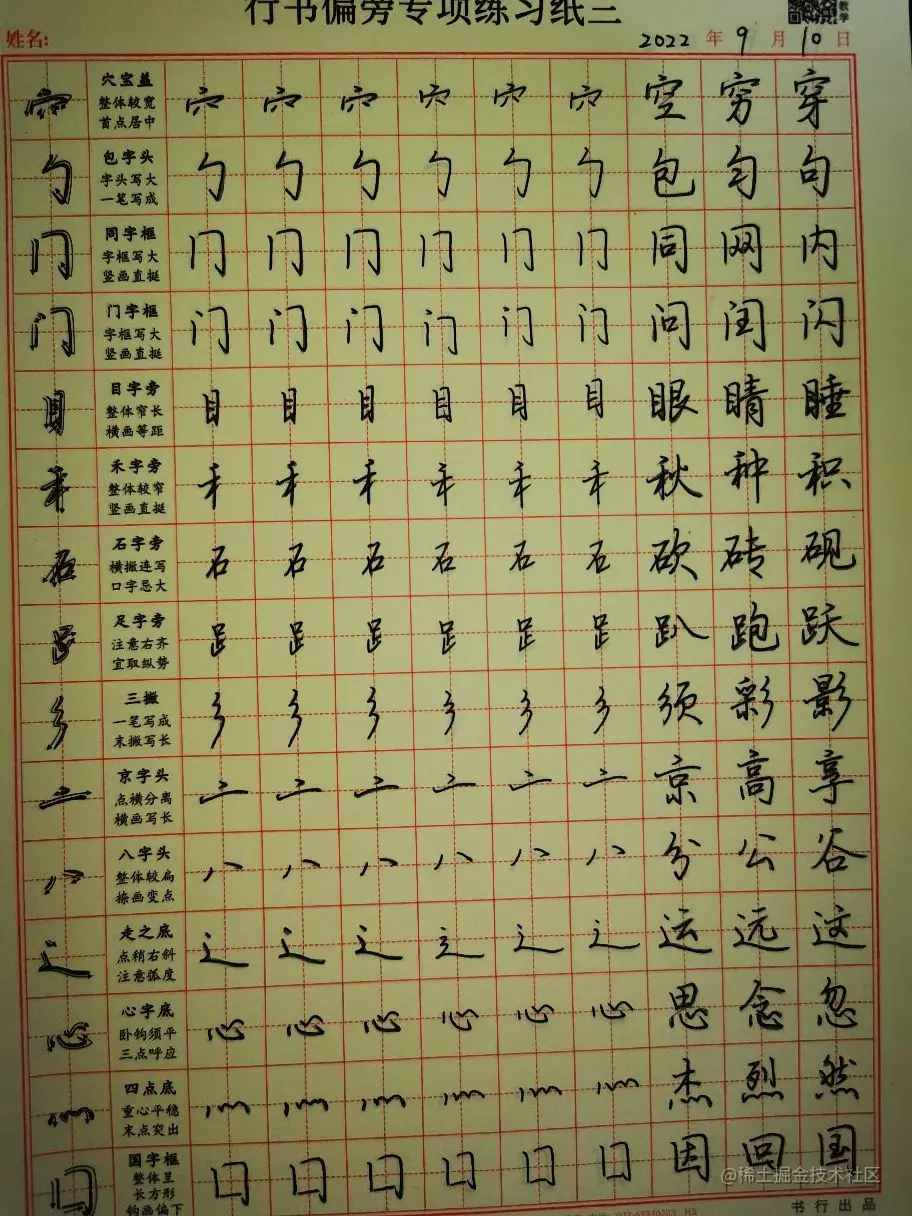 行书偏旁专项练习纸三
教学
姓名: 2022年9月10日
穴宝盖 整体较宽 首点居中 空 穷 穿
包字头 字头写大 一笔写成 勹 勹 勹 勹 勹 勹 包 匀 句
同字框 字框写大 竖画直挺 冂 冂 冂 冂 冂 冂 同 网 内
门字框 字框写大 竖画直挺 门 门 门 门 门 门 问 闰 闪
目字旁 整体窄长 横画等距 目 目 目 目 目 目 眼 睛 睡
禾字旁 整体较窄 竖画直挺 禾 禾 禾 禾 禾 禾 秋 种 积
石字旁 横撇连写 口字忌大 石 石 石 石 石 石 砍 砖 砚
足字旁 注意右齐 宜取纵势 𧾷 𧾷 𧾷 𧾷 𧾷 𧾷 趴 跑 跃
三撇 一笔写成 末撇写长 彡 彡 彡 彡 彡 彡 须 彩 影
京字头 点横分离 横画写长 亠 亠 亠 亠 亠 亠 京 高 享
八字头 整体较扁 捺画变点 八 八 八 八 八 八 分 公 谷
走之底 点稍右斜 注意弧度 辶 辶 辶 辶 辶 辶 运 远 这
心字底 卧钩须平 三点呼应 心 心 心 心 心 心 思 念 忽
四点底 重心平稳 末点突出 灬 灬 灬 灬 灬 灬 杰 烈 然
国字框 整体呈 长方形 钩画偏下 囗 囗 囗 囗 囗 囗 因 回 国
@稀土掘金技术社区
书行出品